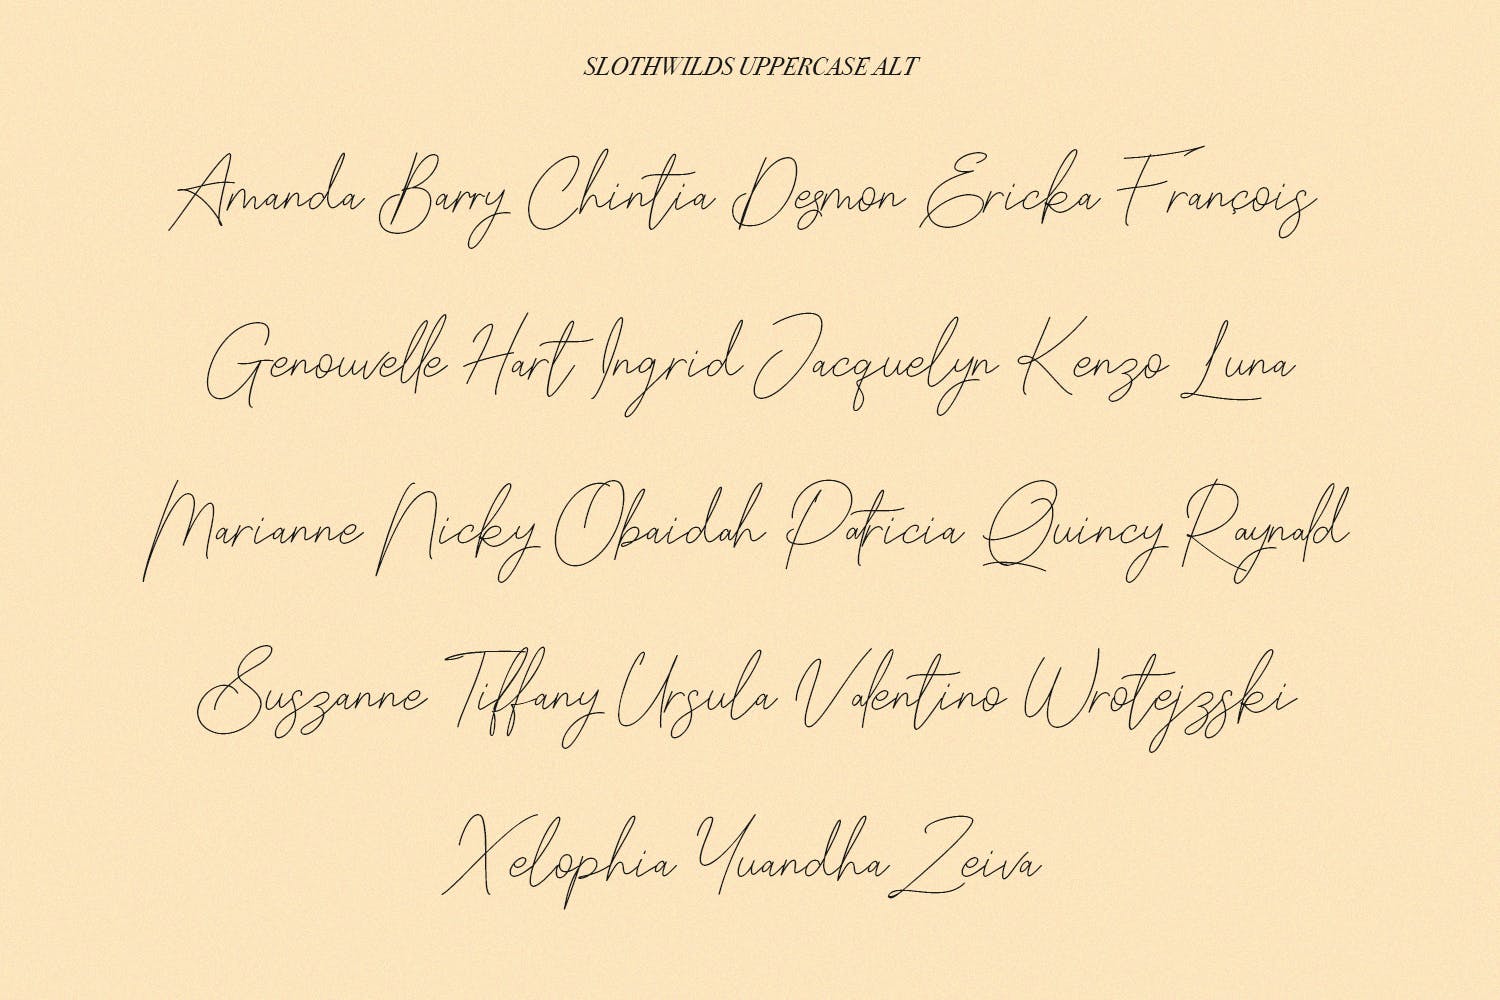 SLOTHWILDS UPPERCASE ALT
Amanda Barry Chintia Desmon Ericka François
Genouvelle Hart Ingrid Jacquelyn Kenzo Luna
Marianne Nicky Obaidah Patricia Quincy Raynald
Suszanne Tiffany Ursula Valentino Wrotejzski
Xelophia Yuandha Zeiva